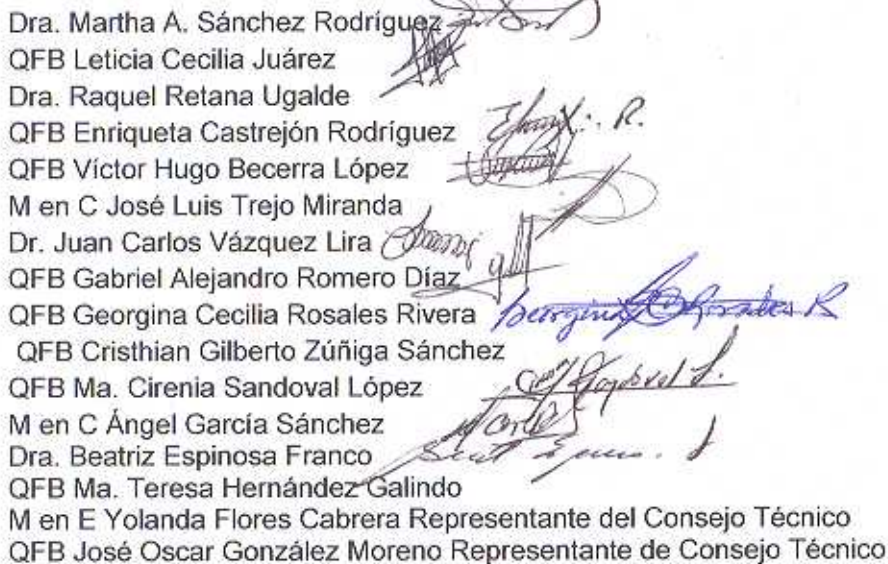 Dra. Martha A. Sánchez Rodríguez
QFB Leticia Cecilia Juárez
Dra. Raquel Retana Ugalde
QFB Enriqueta Castrejón Rodríguez
QFB Víctor Hugo Becerra López
M en C José Luis Trejo Miranda
Dr. Juan Carlos Vázquez Lira
QFB Gabriel Alejandro Romero Díaz
QFB Georgina Cecilia Rosales Rivera Georgina C Rosales R
QFB Cristhian Gilberto Zúñiga Sánchez
QFB Ma. Cirenia Sandoval López Sandoval L.
M en C Ángel García Sánchez
Dra. Beatriz Espinosa Franco
QFB Ma. Teresa Hernández Galindo
M en E Yolanda Flores Cabrera Representante del Consejo Técnico
QFB José Oscar González Moreno Representante de Consejo Técnico